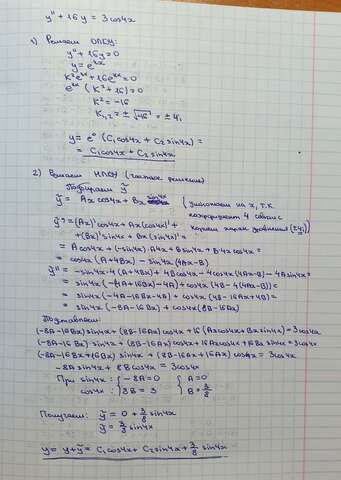 y'' + 16y = 3cos4x
1) Решаем ОЛДУ:
y'' + 16y = 0
y = e^{kx}
k²e^{kx} + 16e^{kx} = 0
e^{kx} (k² + 16) = 0
k² = -16
k_{1,2} = ± √-16 = ± 4i
y = e⁰ (C₁cos4x + C₂sin4x) =
= C₁cos4x + C₂sin4x
2) Решаем НЛДУ (частное решение)
Подбираем ỹ
ỹ = Ax cos4x + Bx sin4x (домножаем на x, т.к.
коэффициент 4 связан с
корнем харак. уравнения (±4i))
ỹ' = (Ax)' cos4x + Ax(cos4x)' +
+ (Bx)' sin4x + Bx (sin4x)' =
= A cos4x + (-sin4x)·A4x + B sin4x + B·4x cos4x =
= cos4x (A + 4Bx) - sin4x (4Ax - B)
ỹ'' = -sin4x·4 (A + 4Bx) + 4B cos4x - 4cos4x (4Ax - B) - 4A sin4x =
= sin4x (-4(A + 4Bx) - 4A) + cos4x (4B - 4(4Ax - B)) =
= sin4x (-4A - 16Bx - 4A) + cos4x (4B - 16Ax + 4B) =
= sin4x (-8A - 16Bx) + cos4x (8B - 16Ax)
Подставляем:
(-8A - 16Bx) sin4x + (8B - 16Ax) cos4x + 16 (Ax cos4x + Bx sin4x) = 3cos4x
(-8A - 16Bx) sin4x + (8B - 16Ax) cos4x + 16Ax cos4x + 16Bx sin4x = 3cos4x
(-8A - 16Bx + 16Bx) sin4x + (8B - 16Ax + 16Ax) cos4x = 3cos4x
-8A sin4x + 8B cos4x = 3cos4x
При sin4x: { -8A = 0 { A = 0
cos4x: { 8B = 3 { B = 3/8
Получаем: ỹ = 0 + 3/8 sin4x
ỹ = 3/8 sin4x
y = y + ỹ = C₁cos4x + C₂sin4x + 3/8 sin4x